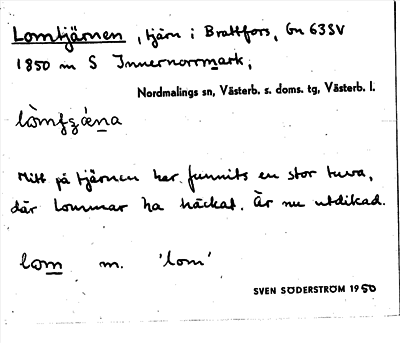 Lomtjärnen, tjärn i Brattfors, Gn 63SV
1850 m S Innernorrmark,
Nordmalings sn, Västerb. s. doms. tg, Västerb. l.
Mitt på tjärnen har funnits en stor tuva,
där lommar ha häckat. Är nu utdikad.
lom m. 'lom'
SVEN SÖDERSTRÖM 1950